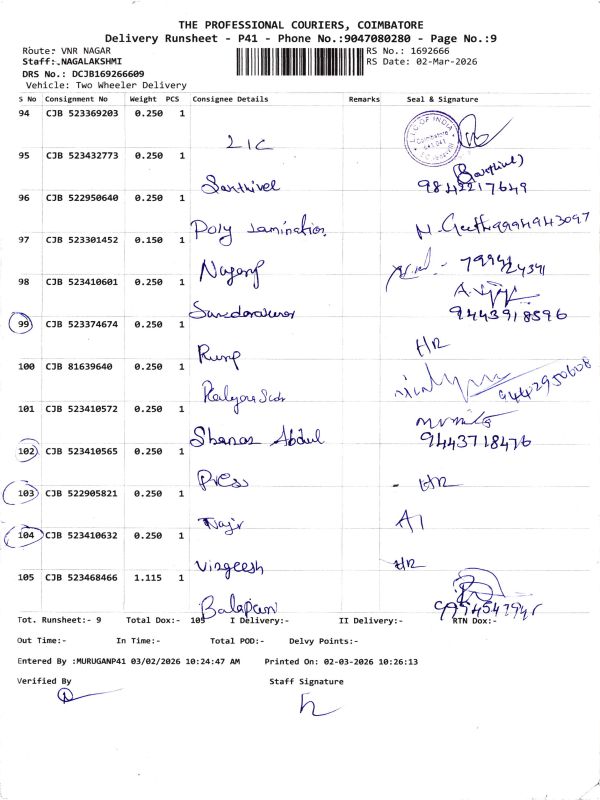 THE PROFESSIONAL COURIERS, COIMBATORE
Delivery Runsheet - P41 - Phone No.:9047080280 - Page No.:9
Route: VNR NAGAR
RS No.: 1692666
Staff:.NAGALAKSHMI
RS Date: 02-Mar-2026
DRS No.: DCJB169266609
Vehicle: Two Wheeler Delivery
S No Consignment No Weight PCS Consignee Details Remarks Seal & Signature
94 CJB 523369203 0.250 1
LIC
LIC OF INDIA
Coimbatore
95 CJB 523432773 0.250 1
Santhivel
9842217649
96 CJB 522950640 0.250 1
Poly Lamination
97 CJB 523301452 0.150 1
98 CJB 523410601 0.250 1
9443918596
99 CJB 523374674 0.250 1
HR
100 CJB 81639640 0.250 1
9442950608
101 CJB 523410572 0.250 1
Shanas Abdul
9443718476
102 CJB 523410565 0.250 1
Press - HR
103 CJB 522905821 0.250 1
Najir A1
104 CJB 523410632 0.250 1
Virgeesh HR
105 CJB 523468466 1.115 1
Tot. Runsheet:- 9 Total Dox:- 105 I Delivery:- II Delivery:- RTN Dox:-
Out Time:- In Time:- Total POD:- Delvy Points:-
Entered By :MURUGANP41 03/02/2026 10:24:47 AM Printed On: 02-03-2026 10:26:13
Verified By Staff Signature